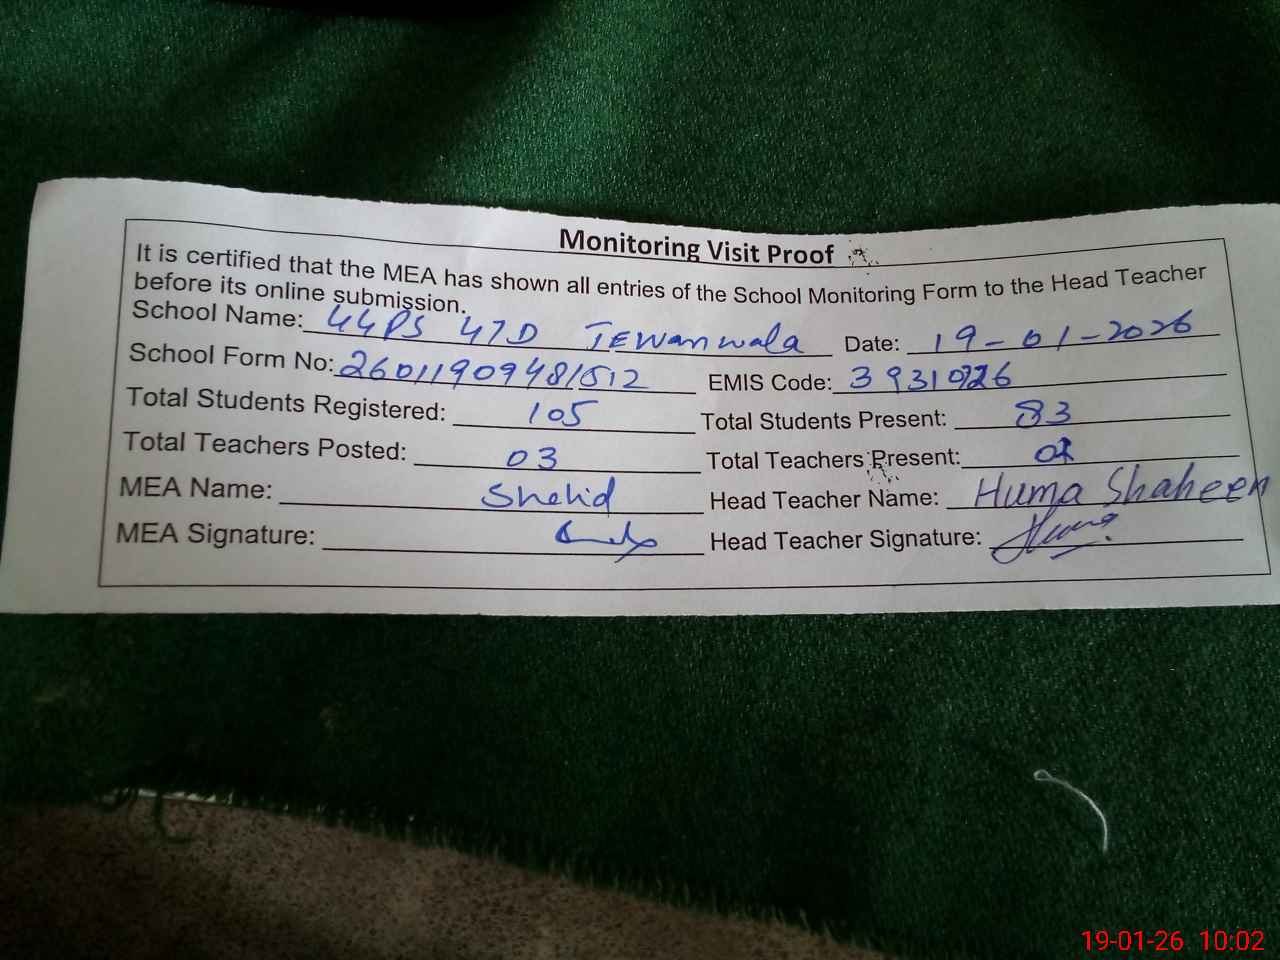 Monitoring Visit Proof
It is certified that the MEA has shown all entries of the School Monitoring Form to the Head Teacher
before its online submission.
School Name: GGPS 47D TEWanwala Date: 19-01-2026
School Form No: EMIS Code:
Total Students Registered: 105 Total Students Present: 83
Total Teachers Posted: 03 Total Teachers Present:
MEA Name: Shahid Head Teacher Name: Huma Shaheen
MEA Signature: Head Teacher Signature:
19-01-26 10:02